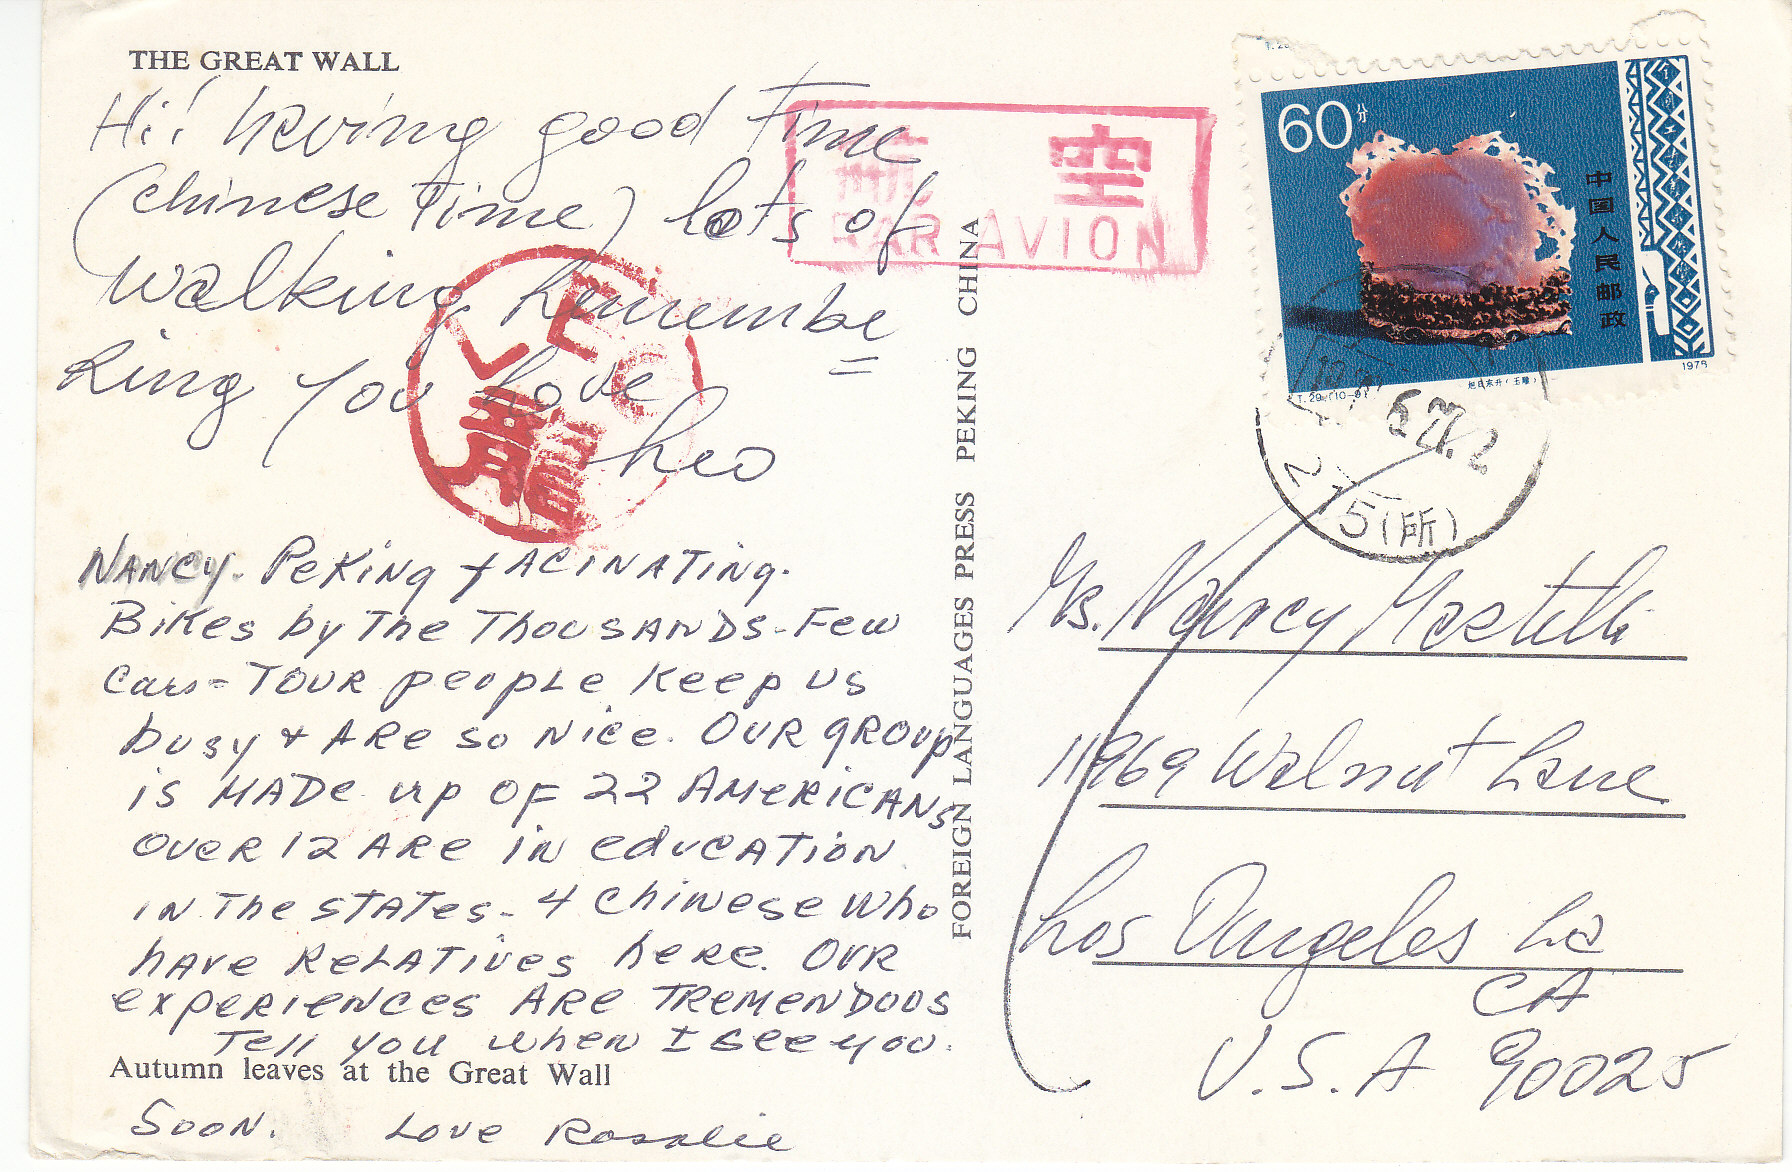 THE GREAT WALL
Hi! having good time
(chinese time) lots of
walking. Remembe
Ring you love
Leo
LEO
龍
NANCY. PeKiNg fACiNATiNg.
BiKes by The ThouSANDS - Few
Cars - TOUR peopLe Keep us
busy + ARe so Nice. OUR gROUp
is MADe up OF 22 AMeRiCANS
OveR 12 ARe iN educATiON
iN The sTATes - 4 ChiNese Who
hAve ReLATives heRe. OUR
expeRieNces ARe TReMeNDOOS
Tell you wheN I see you.
Autumn leaves at the Great Wall
SOON. Love Rosalie
FOREIGN LANGUAGES PRESS PEKING CHINA
航空
PAR AVION
60分
中国人民邮政
旭日东升(玉雕)
T.29.(10-9)
1978
5(所)
Ms. Nancy
11969 Walnut Lane
Los Angeles La
CA
U.S.A 90025